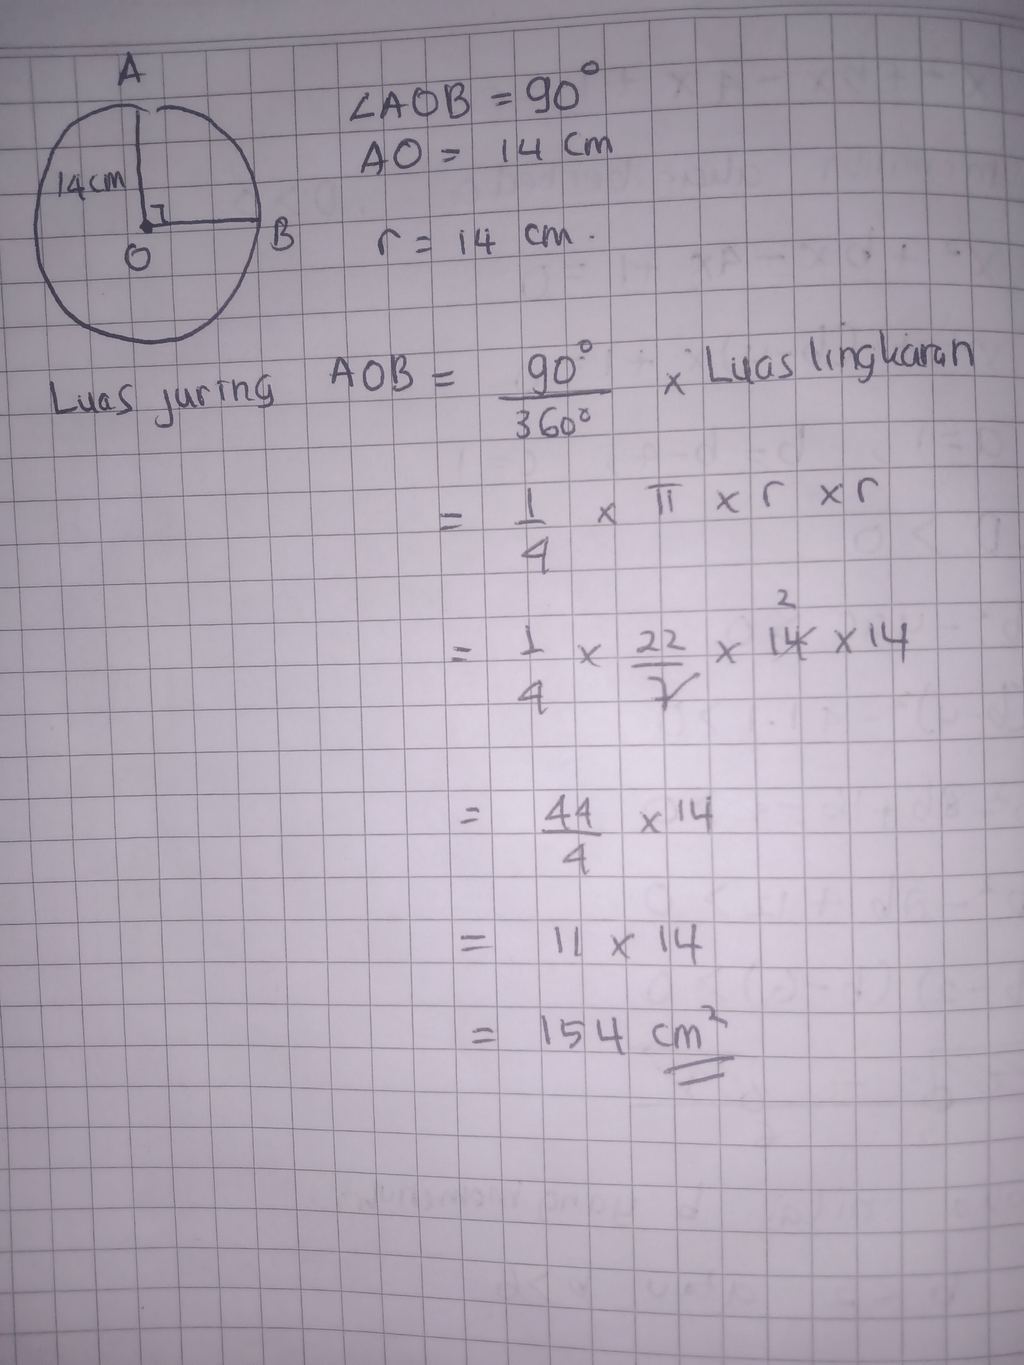 A
14cm
O
B
∠AOB = 90°
AO = 14 cm
r = 14 cm.
Luas juring AOB = 90°/360° x Luas lingkaran
= 1/4 x π x r x r
2
= 1/4 x 22/7 x 14 x 14
= 44/4 x 14
= 11 x 14
= 154 cm²